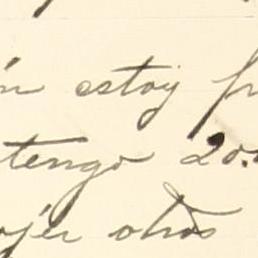 n estoy
tengo 20.
ojér otros